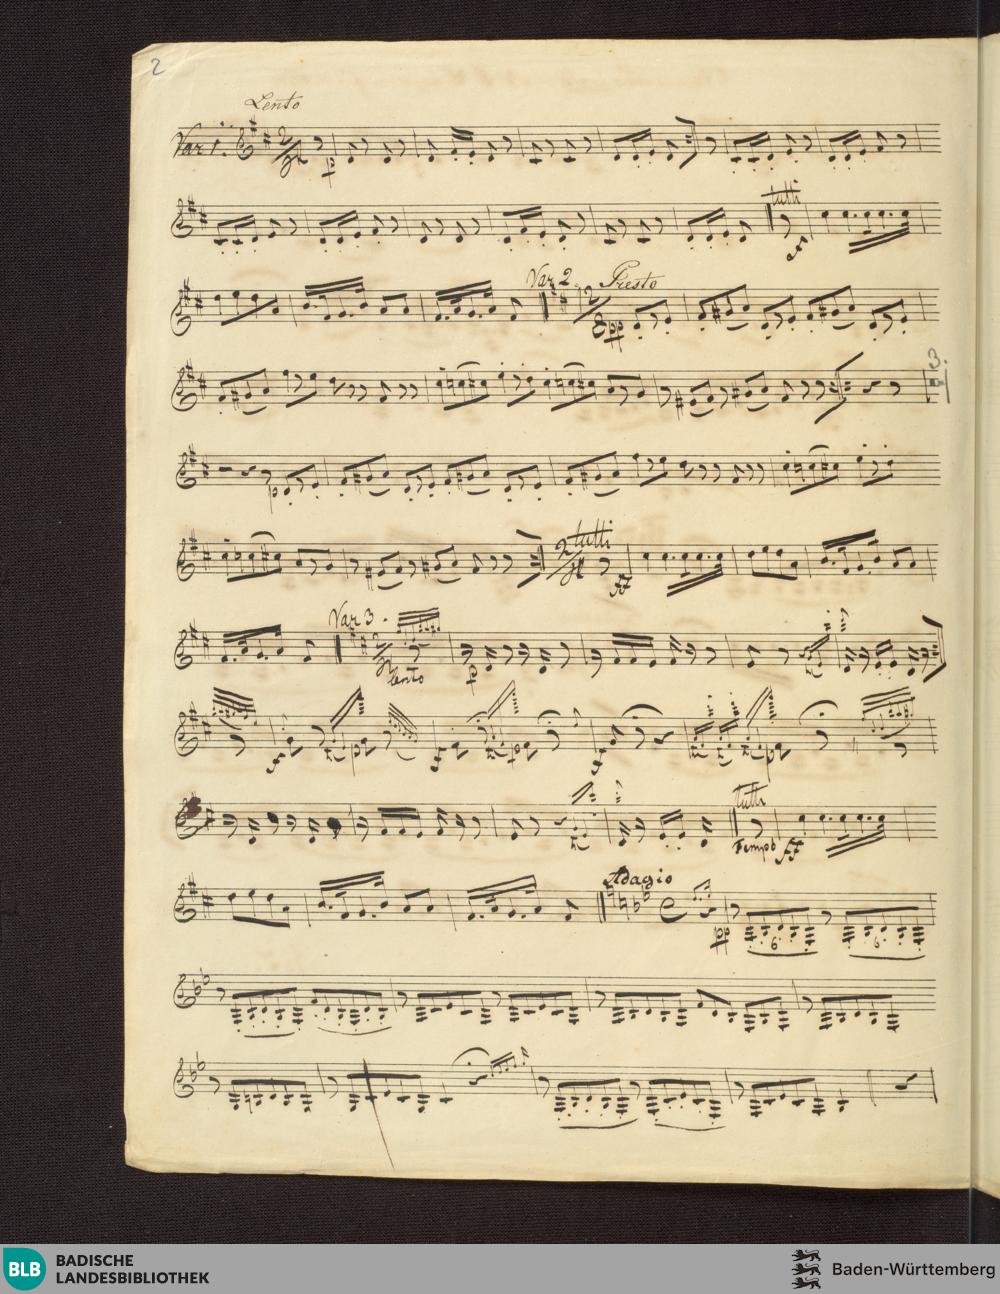 2
Lento
Var 1.
2/4
p
tutti
f
Var 2. Presto
2/8
pp
3.
p
2/4
tutti
ff
Var 3.
2/4
lento
p
f
p
f
p
f
p
tutti
Tempo
ff
Adagio
pp
6
6
BLB
BADISCHE
LANDESBIBLIOTHEK
Baden-Württemberg